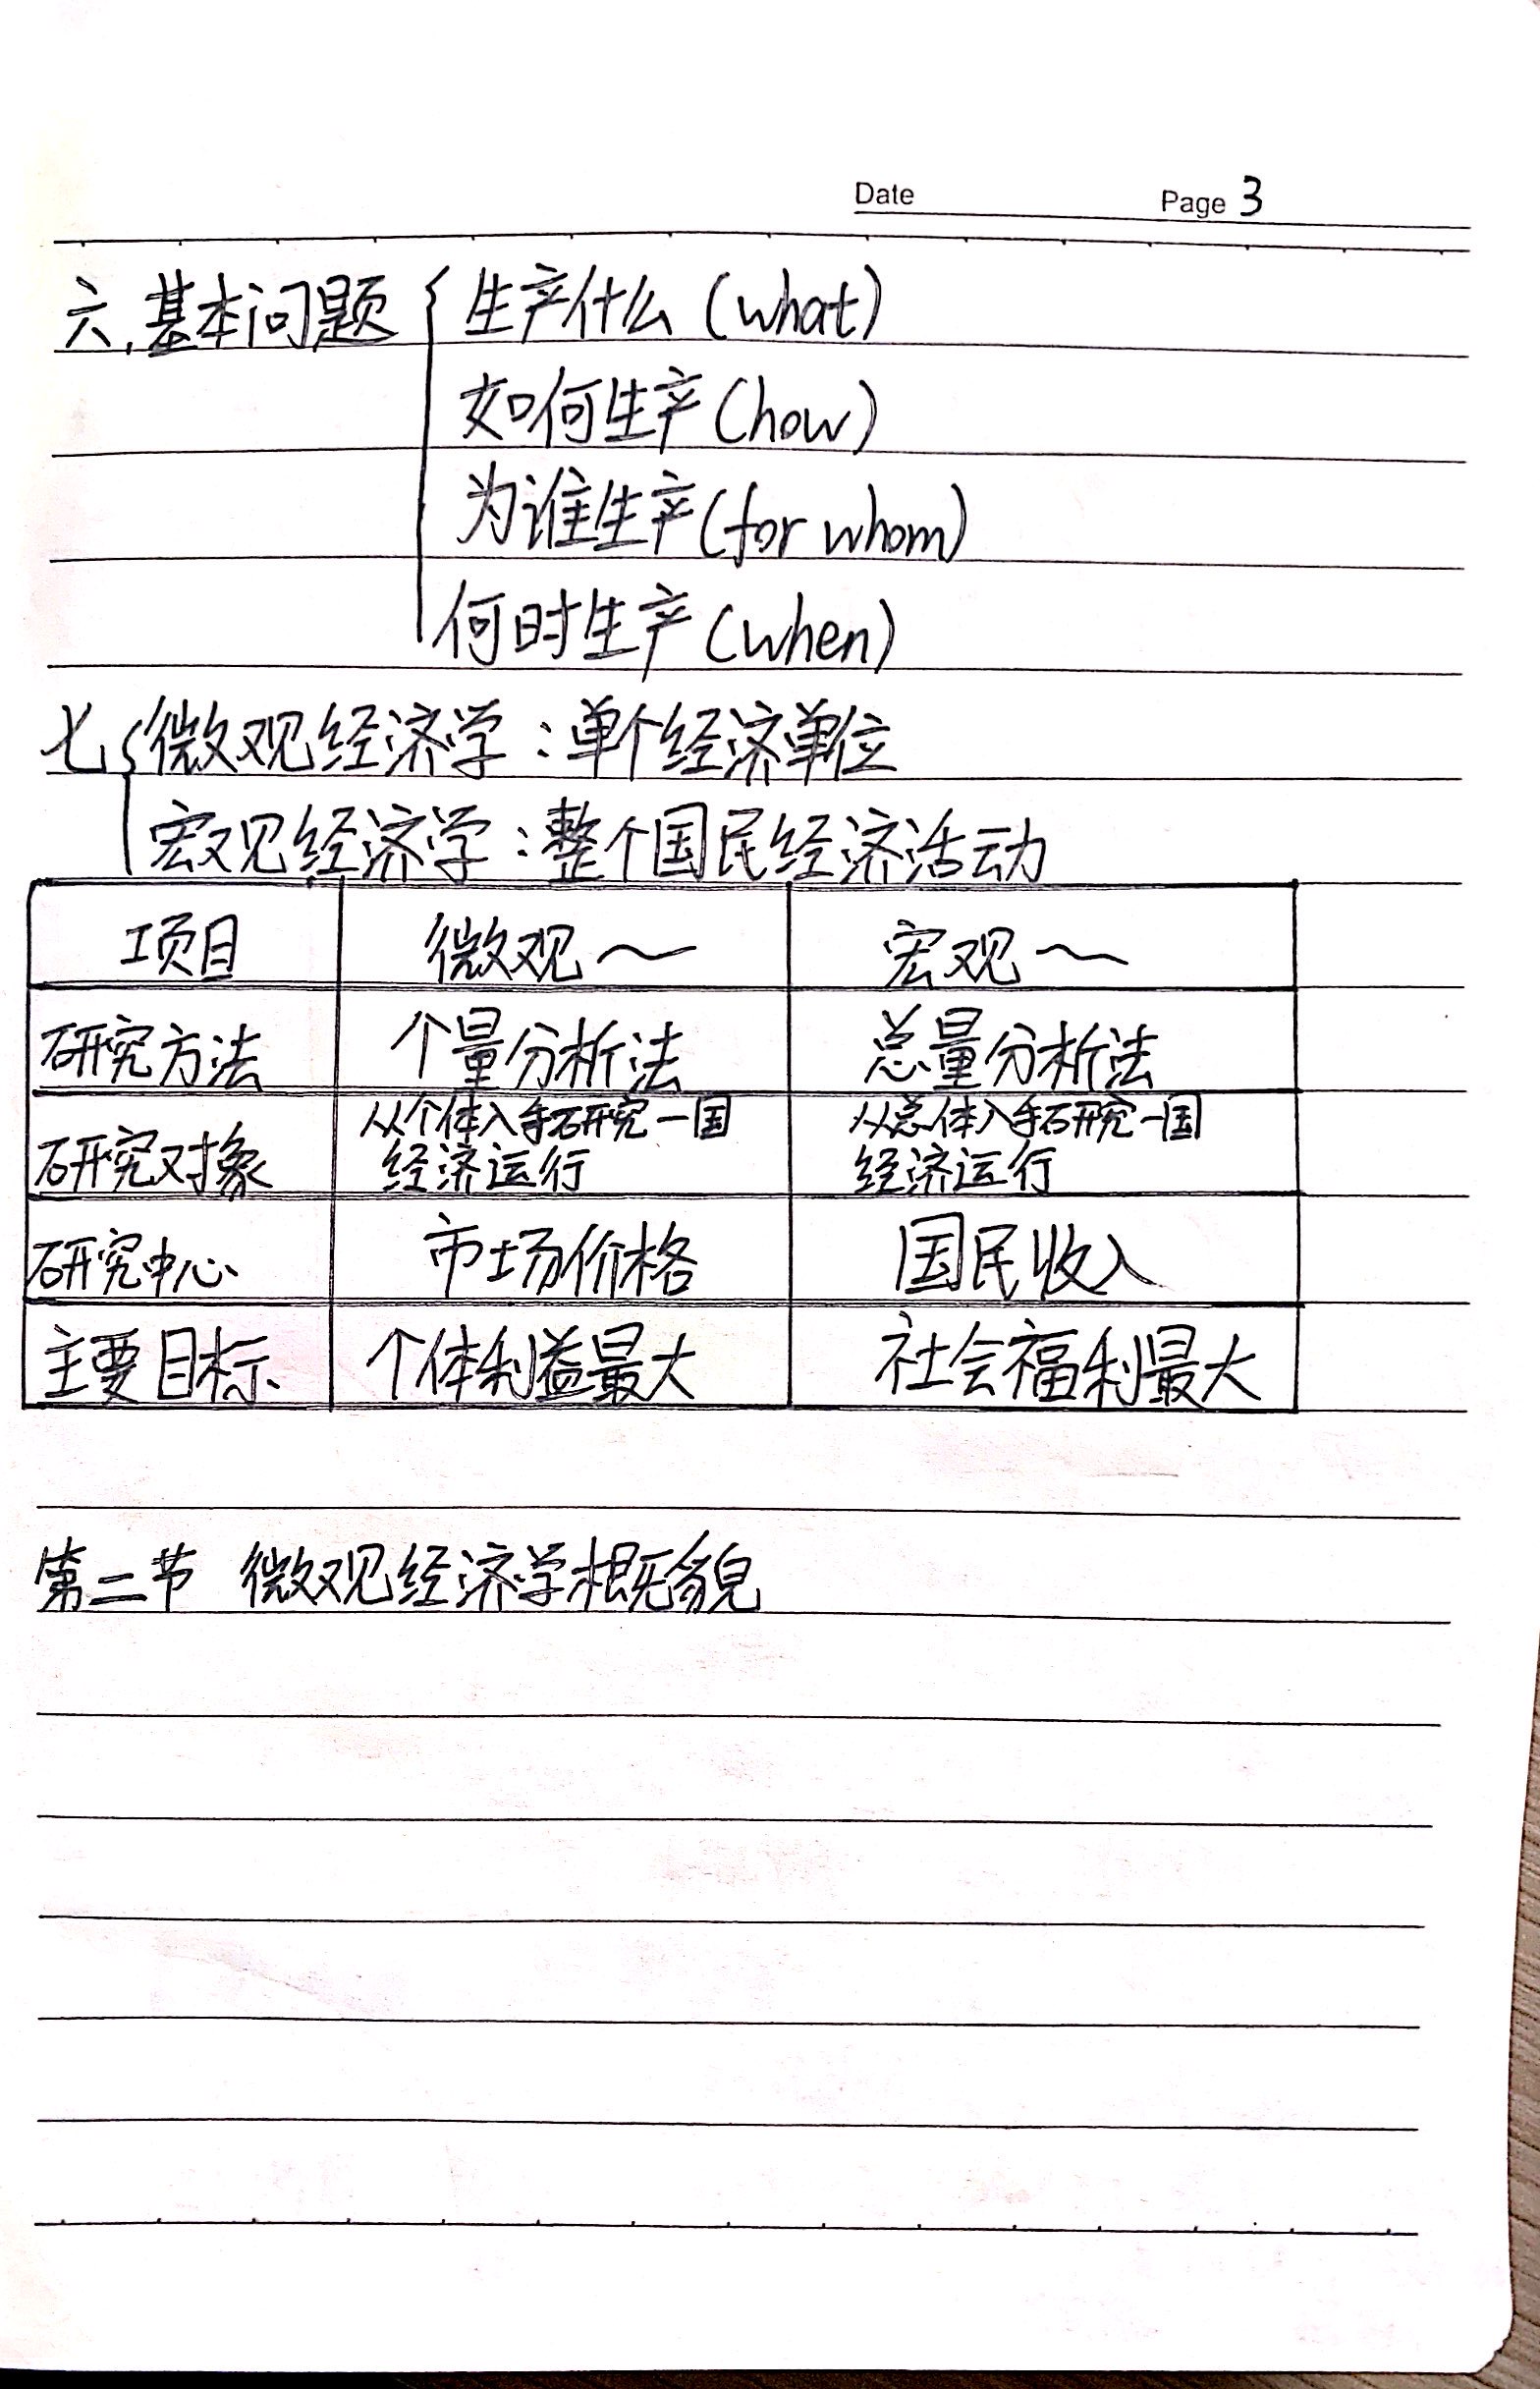 Date Page 3
六、基本问题 { 生产什么 (what)
如何生产 (how)
为谁生产 (for whom)
何时生产 (when)
七 { 微观经济学：单个经济单位
宏观经济学：整个国民经济活动
项目 微观～ 宏观～
研究方法 个量分析法 总量分析法
研究对象 从个体入手研究一国 从总体入手研究一国
经济运行 经济运行
研究中心 市场价格 国民收入
主要目标 个体利益最大 社会福利最大
第二节 微观经济学概貌